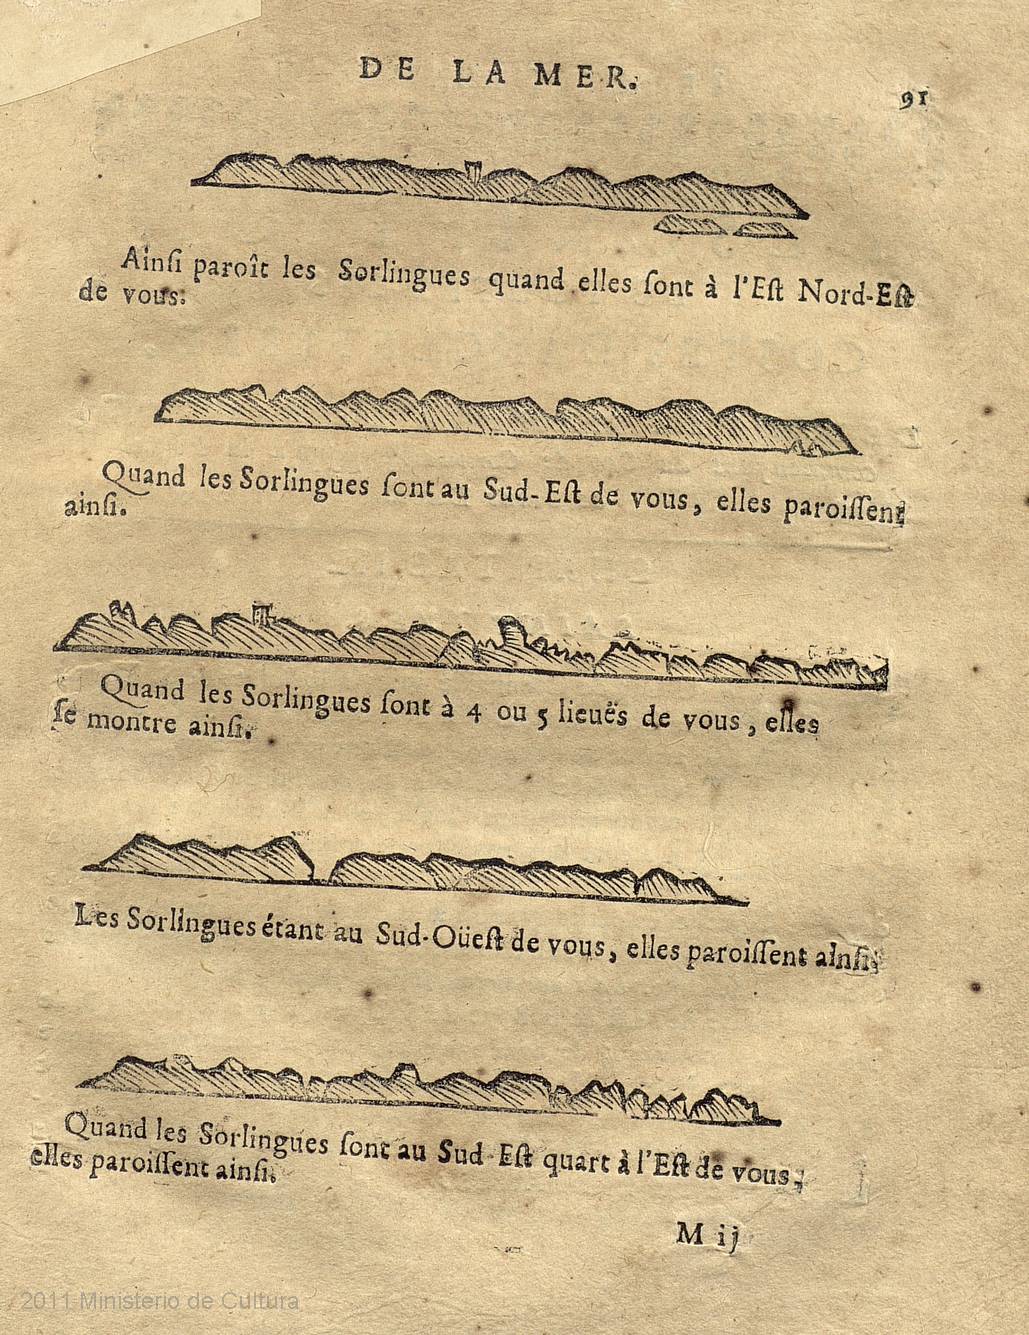 DE LA MER.
91
Ainſi paroît les Sorlingues quand elles ſont à l'Eſt Nord-Eſt
de vous:
Quand les Sorlingues ſont au Sud-Eſt de vous, elles paroiſſent
ainſi.
Quand les Sorlingues ſont à 4 ou 5 lieuës de vous, elles
ſe montre ainſi.
Les Sorlingues étant au Sud-Oüeſt de vous, elles paroiſſent ainſi.
Quand les Sorlingues ſont au Sud-Eſt quart à l'Eſt de vous,
elles paroiſſent ainſi.
M ij
2011 Ministerio de Cultura